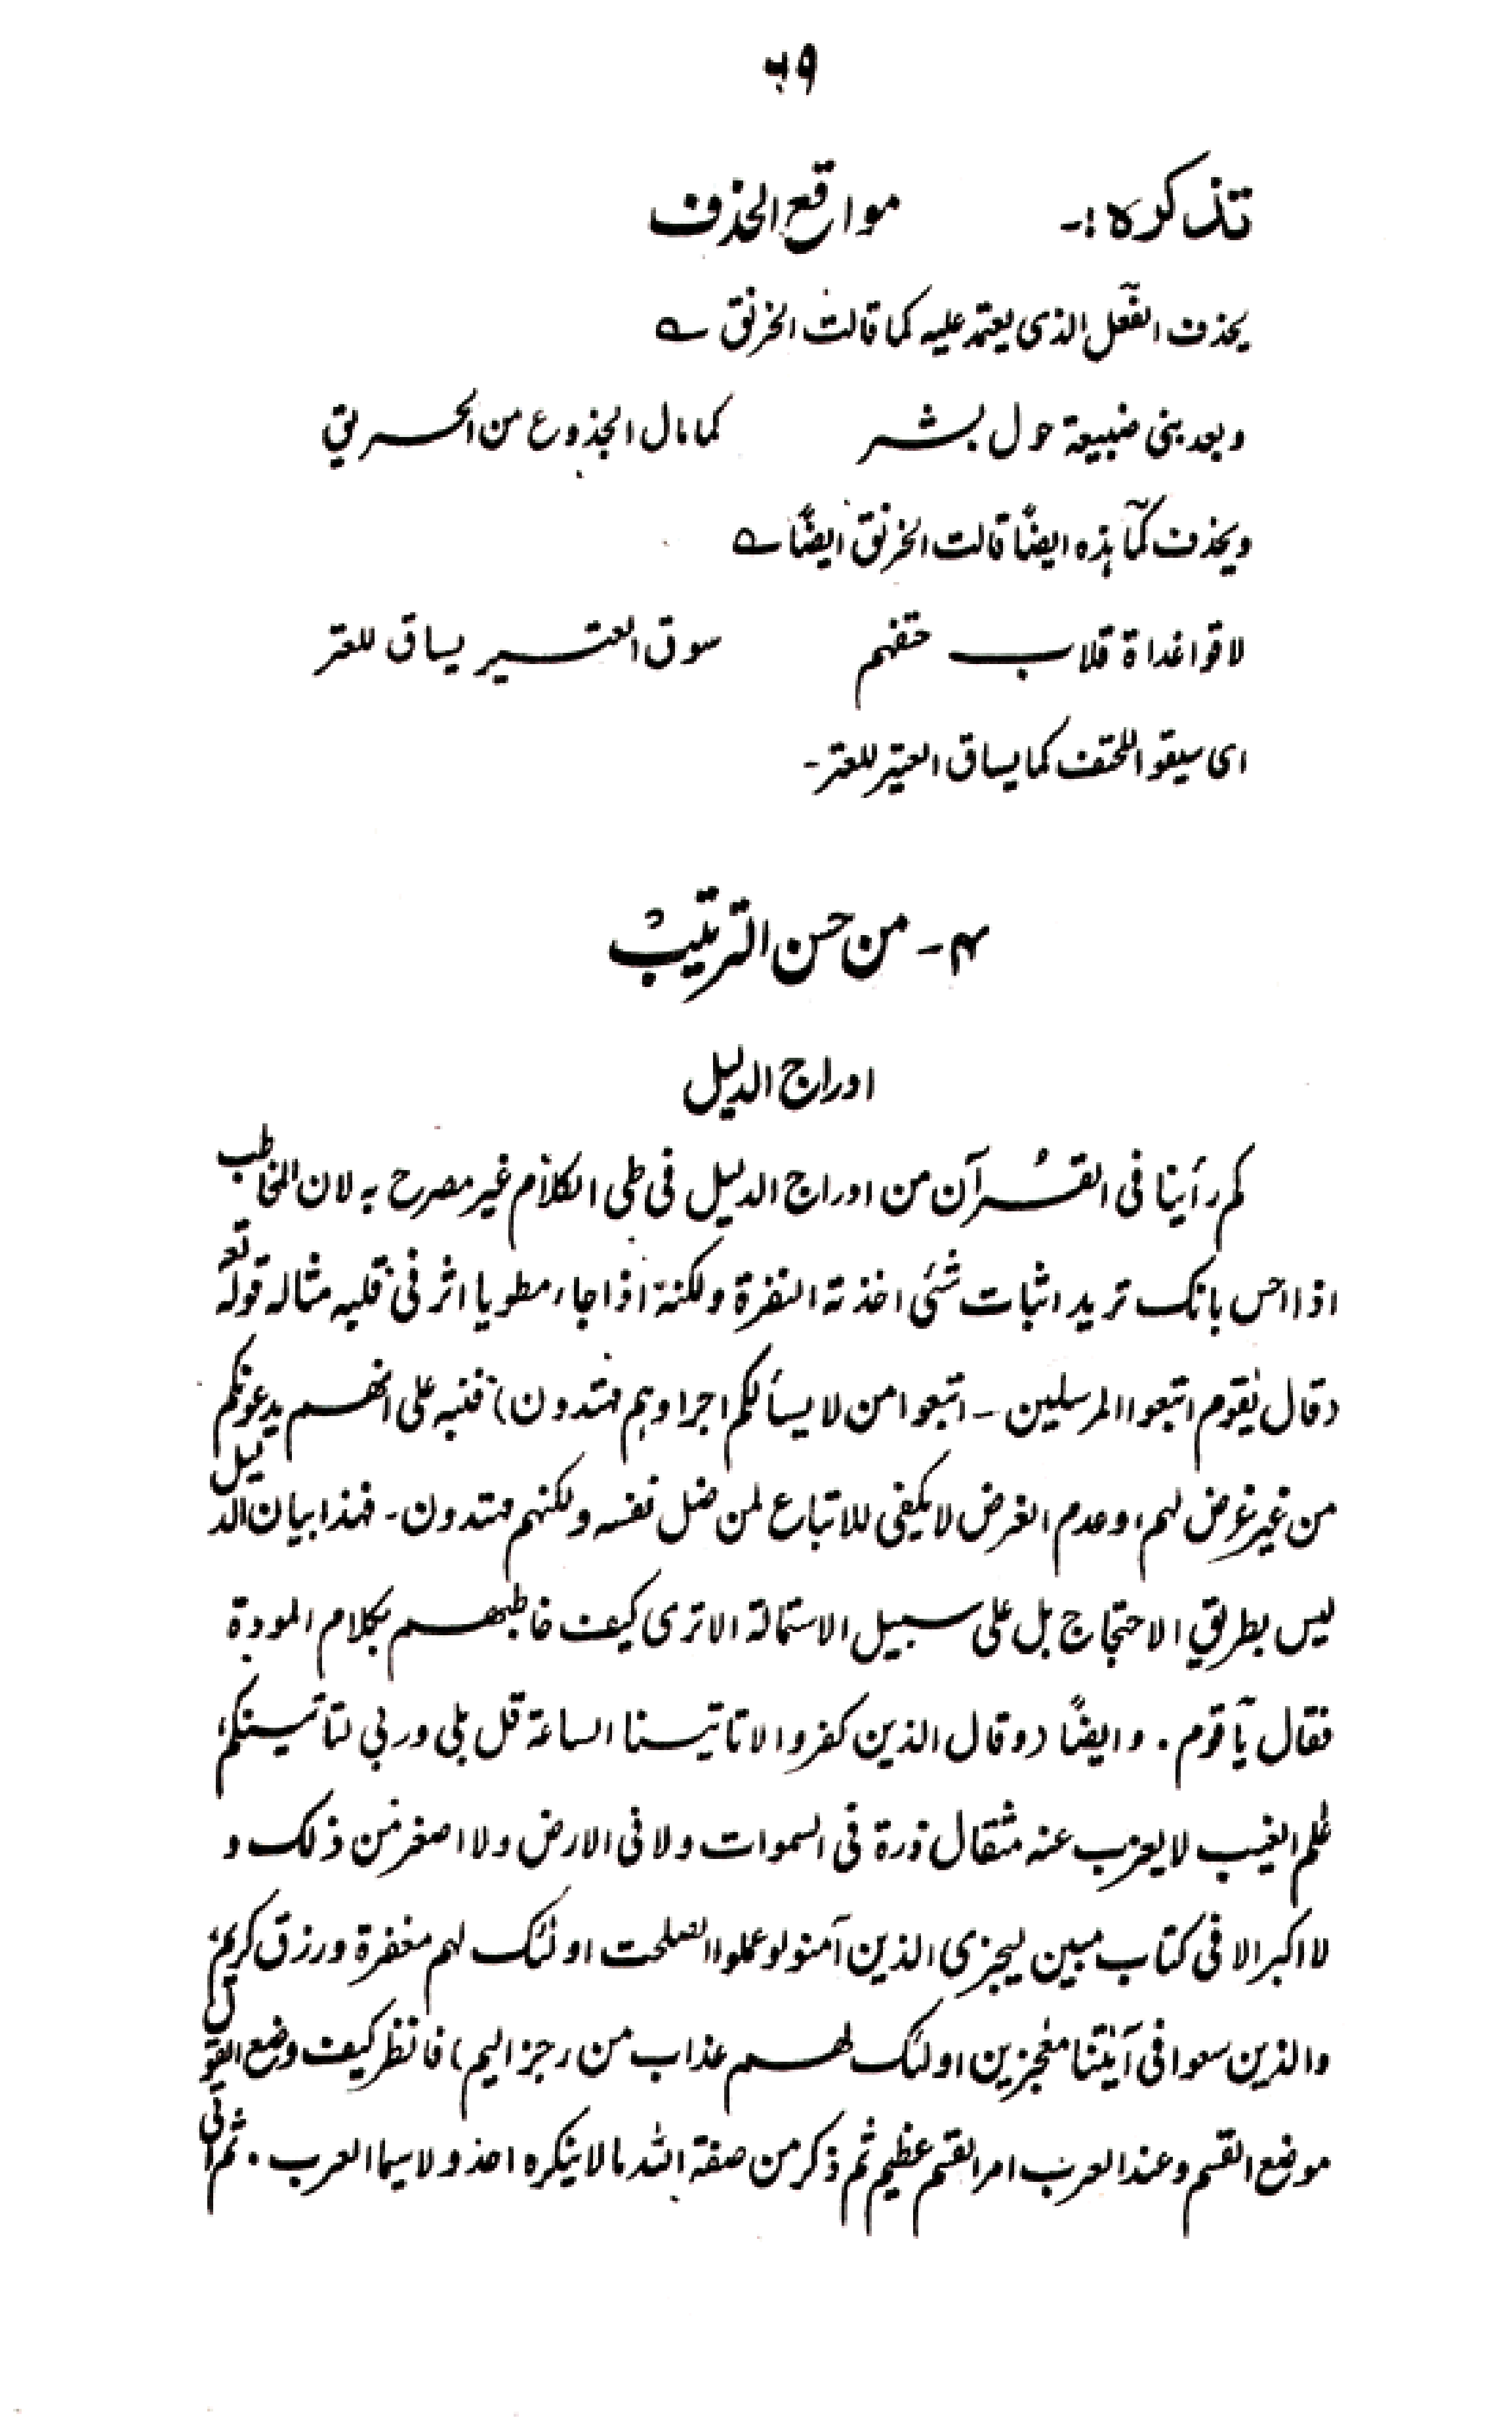 ۶۹
تذكره:- مواقع الحذف
يحذف الفعل الذى يعتمد عليه كما قالت الخرنق ؎
وبعد بنى ضبيعة حول بشر كما مال الجذوع من الحريق
ويحذف كما هذه ايضًا قالت الخرنق ايضًا ؎
لاقوا غداة قلاب حتفهم سوق العتير يساق للعتر
اى سيقوا للحتف كما يساق العتير للعتر-
۴- من حسن الترتيب
ادراج الدليل
كم رأينا فى القرآن من ادراج الدليل فى طى الكلام غير مصرح به لان المخاطب
اذا احس بانك تريد اثبات شئى اخذته النفرة ولكنه اذا جاء مطويا اثر فى قلبه مثاله قوله تع
(قال يٰقوم اتبعوا المرسلين- اتبعوا من لا يسألكم اجرا وهم مهتدون) فنبه على انهم يدعونكم
من غير غرض لهم، وعدم الغرض لا يكفى للاتباع لمن ضل نفسه ولكنهم مهتدون- فهذا بيان الدليل
ليس بطريق الاحتجاج بل على سبيل الاستمالة الا ترى كيف خاطبهم بكلام المودة
فقال يآ قوم. وايضًا (وقال الذين كفروا لا تاتينا الساعة قل بلى وربى لتاتينكم،
عٰلم الغيب لا يعزب عنه مثقال ذرة فى السموات ولا فى الارض ولا اصغر من ذلك و
لا اكبر الا فى كتاب مبين ليجزى الذين آمنوا وعملوا الصلحت اولئك لهم مغفرة ورزق كريم،
والذين سعوا فى آيٰتنا معٰجزين اولئك لهم عذاب من رجز اليم) فانظر كيف وضع القول
موضع القسم وعند العرب امر القسم عظيم ثم ذكر من صفة الله ما لا ينكره احد ولا سيما العرب. ثم اتى